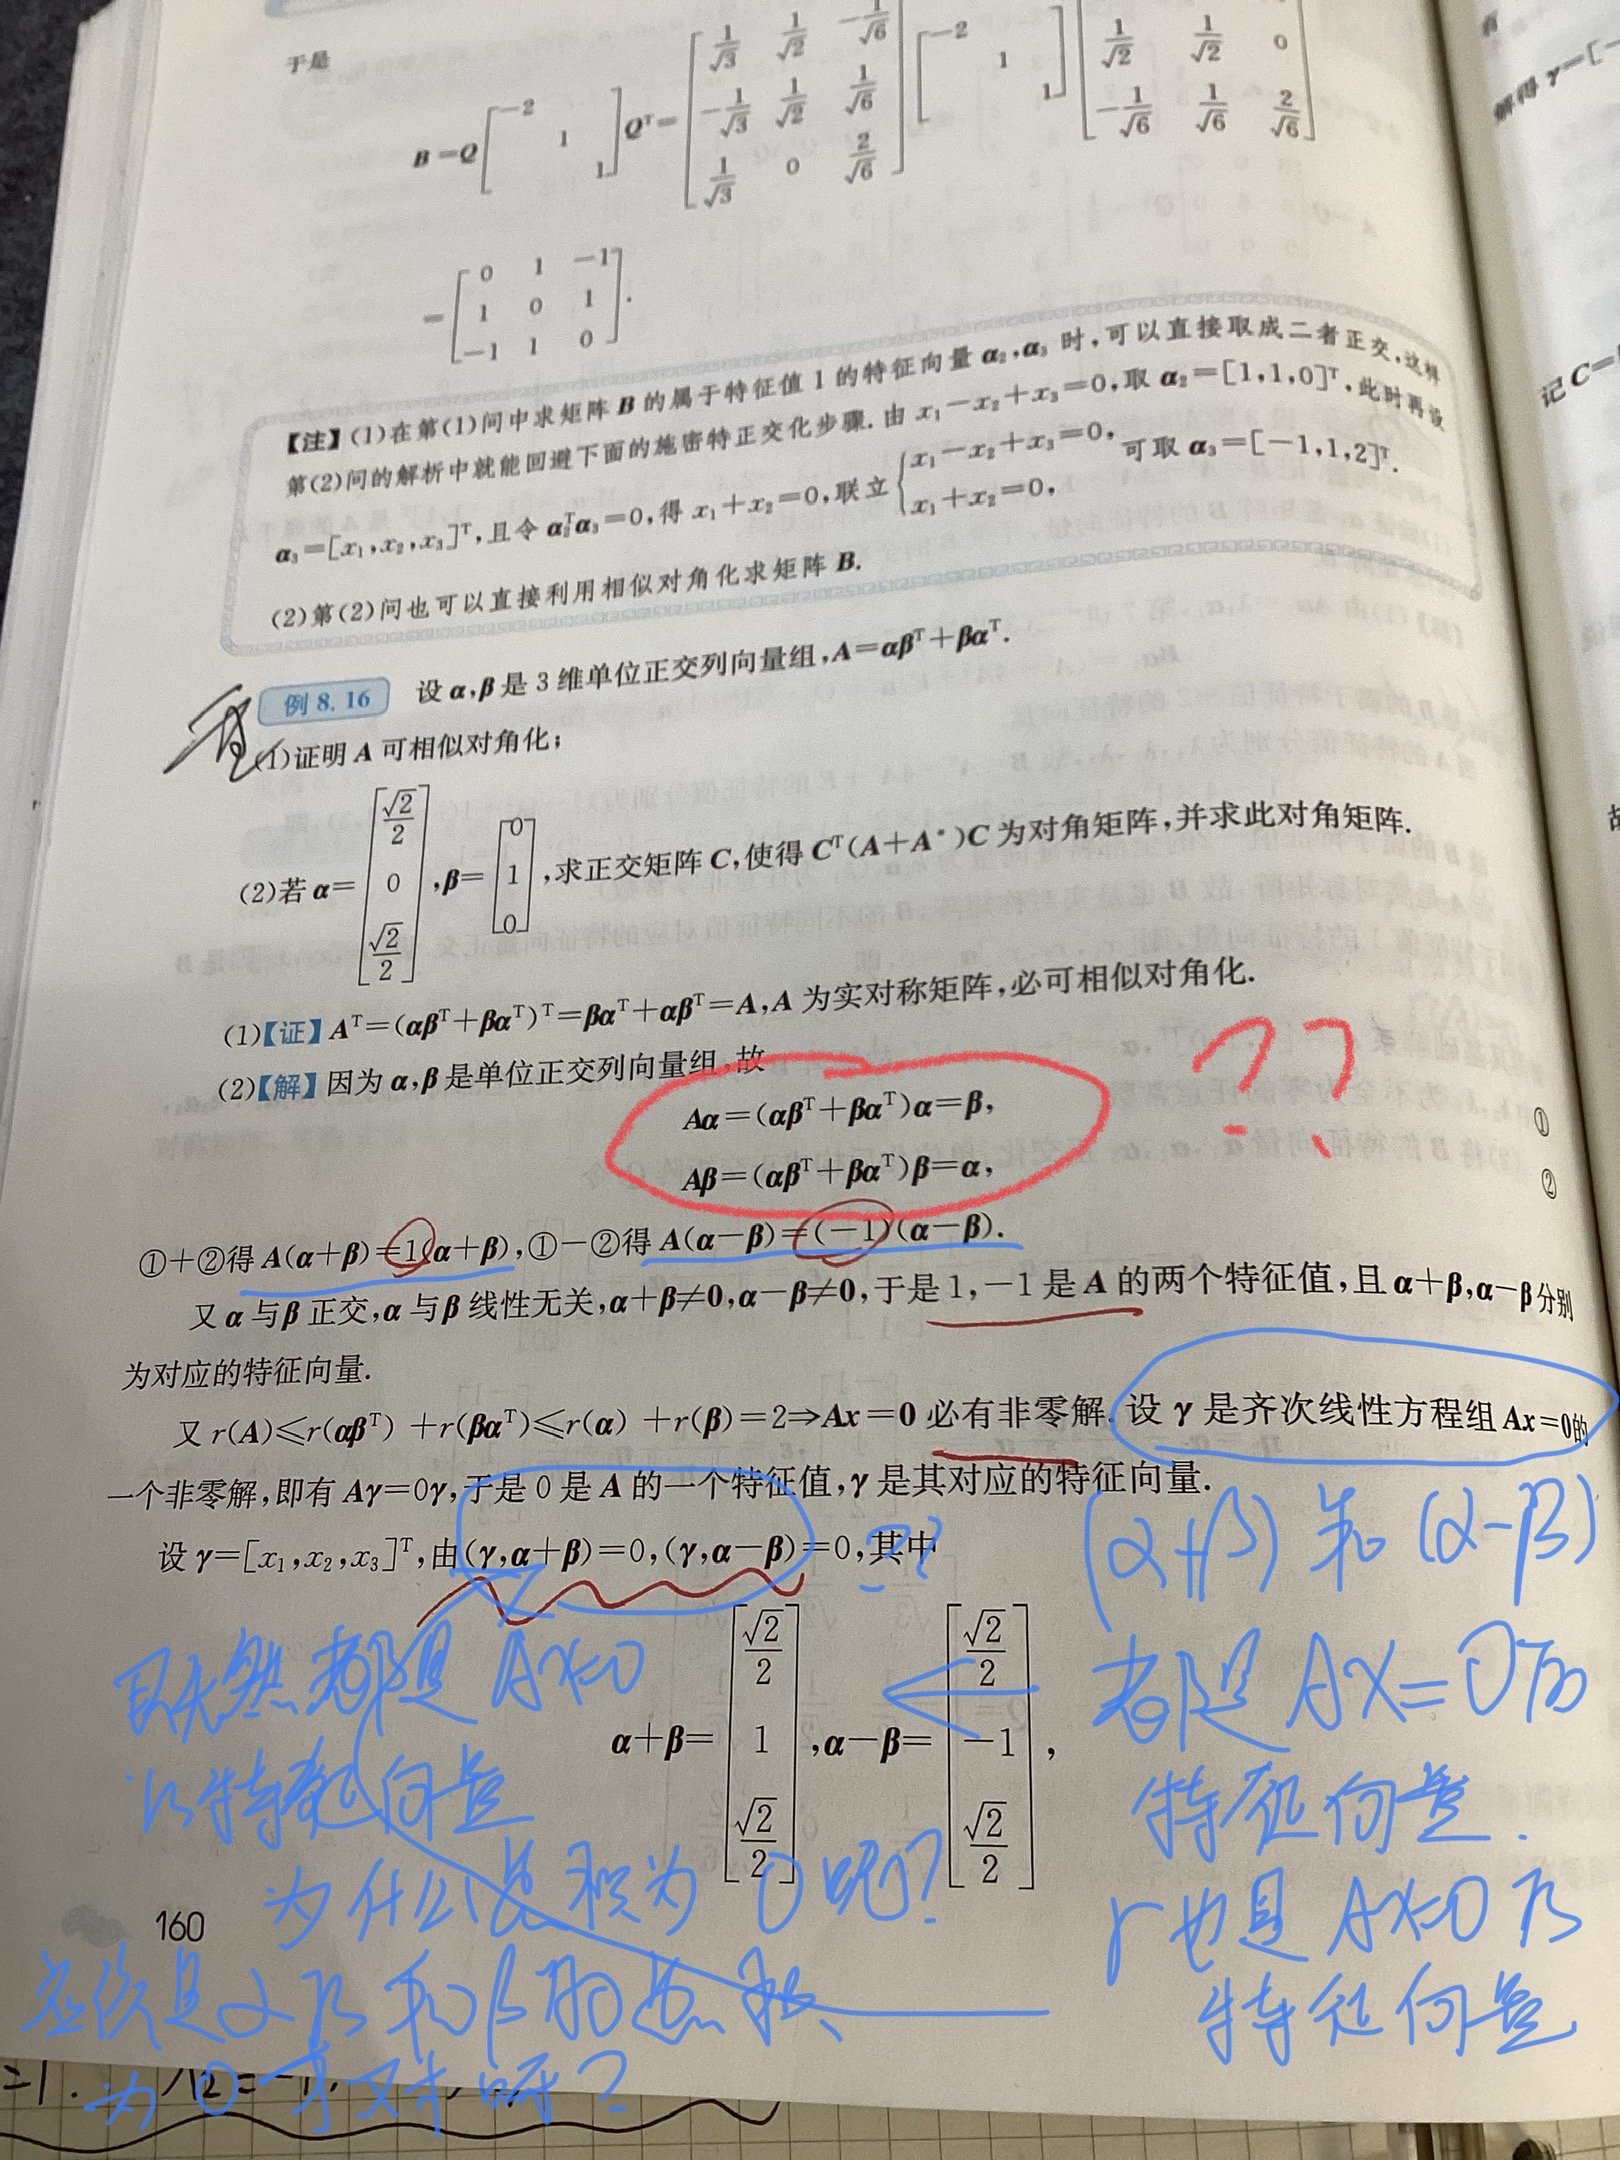 于是
B=Q[-2 1 1]Qᵀ=[1/√3 1/√2 -1/√6; -1/√3 1/√2 1/√6; 1/√3 0 2/√6][-2 1 1][1/√2 1/√2 0; -1/√6 1/√6 2/√6]
=[0 1 -1; 1 0 1; -1 1 0].
【注】(1)在第(1)问中求矩阵 B 的属于特征值 1 的特征向量 α₂,α₃ 时,可以直接取成二者正交,这样
第(2)问的解析中就能回避下面的施密特正交化步骤.由 x₁-x₂+x₃=0,取 α₂=[1,1,0]ᵀ,此时再设
α₃=[x₁,x₂,x₃]ᵀ,且令 α₂ᵀα₃=0,得 x₁+x₂=0,联立{x₁-x₂+x₃=0, x₁+x₂=0, 可取 α₃=[-1,1,2]ᵀ.
(2)第(2)问也可以直接利用相似对角化求矩阵 B.
例 8.16 设 α,β 是 3 维单位正交列向量组,A=αβᵀ+βαᵀ.
(1)证明 A 可相似对角化;
(2)若 α=[√2/2; 0; √2/2],β=[0; 1; 0],求正交矩阵 C,使得 Cᵀ(A+A*)C 为对角矩阵,并求此对角矩阵.
(1)【证】Aᵀ=(αβᵀ+βαᵀ)ᵀ=βαᵀ+αβᵀ=A,A 为实对称矩阵,必可相似对角化.
(2)【解】因为 α,β 是单位正交列向量组,故
Aα=(αβᵀ+βαᵀ)α=β, ①
Aβ=(αβᵀ+βαᵀ)β=α, ②
??
①+②得 A(α+β)=1(α+β),①-②得 A(α-β)=(-1)(α-β).
又 α 与 β 正交,α 与 β 线性无关,α+β≠0,α-β≠0,于是 1,-1 是 A 的两个特征值,且 α+β,α-β 分别
为对应的特征向量.
又 r(A)≤r(αβᵀ)+r(βαᵀ)≤r(α)+r(β)=2⇒Ax=0 必有非零解.设 γ 是齐次线性方程组 Ax=0 的
一个非零解,即有 Aγ=0γ,于是 0 是 A 的一个特征值,γ 是其对应的特征向量.
设 γ=[x₁,x₂,x₃]ᵀ,由(γ,α+β)=0,(γ,α-β)=0,其中
??
α+β=[√2/2; 1; √2/2],α-β=[√2/2; -1; √2/2],
(α+β)和(α-β)
都是 AX=0的
特征向量.
r也是 AX=0的
特征向量
既然都是 AX=0
的特征向量
为什么点积为 0呢?
应该是α的和β的点积
为 0 才对呀?
160
=1.
λ₂=-1.
解得 γ=[-
记 C=
故